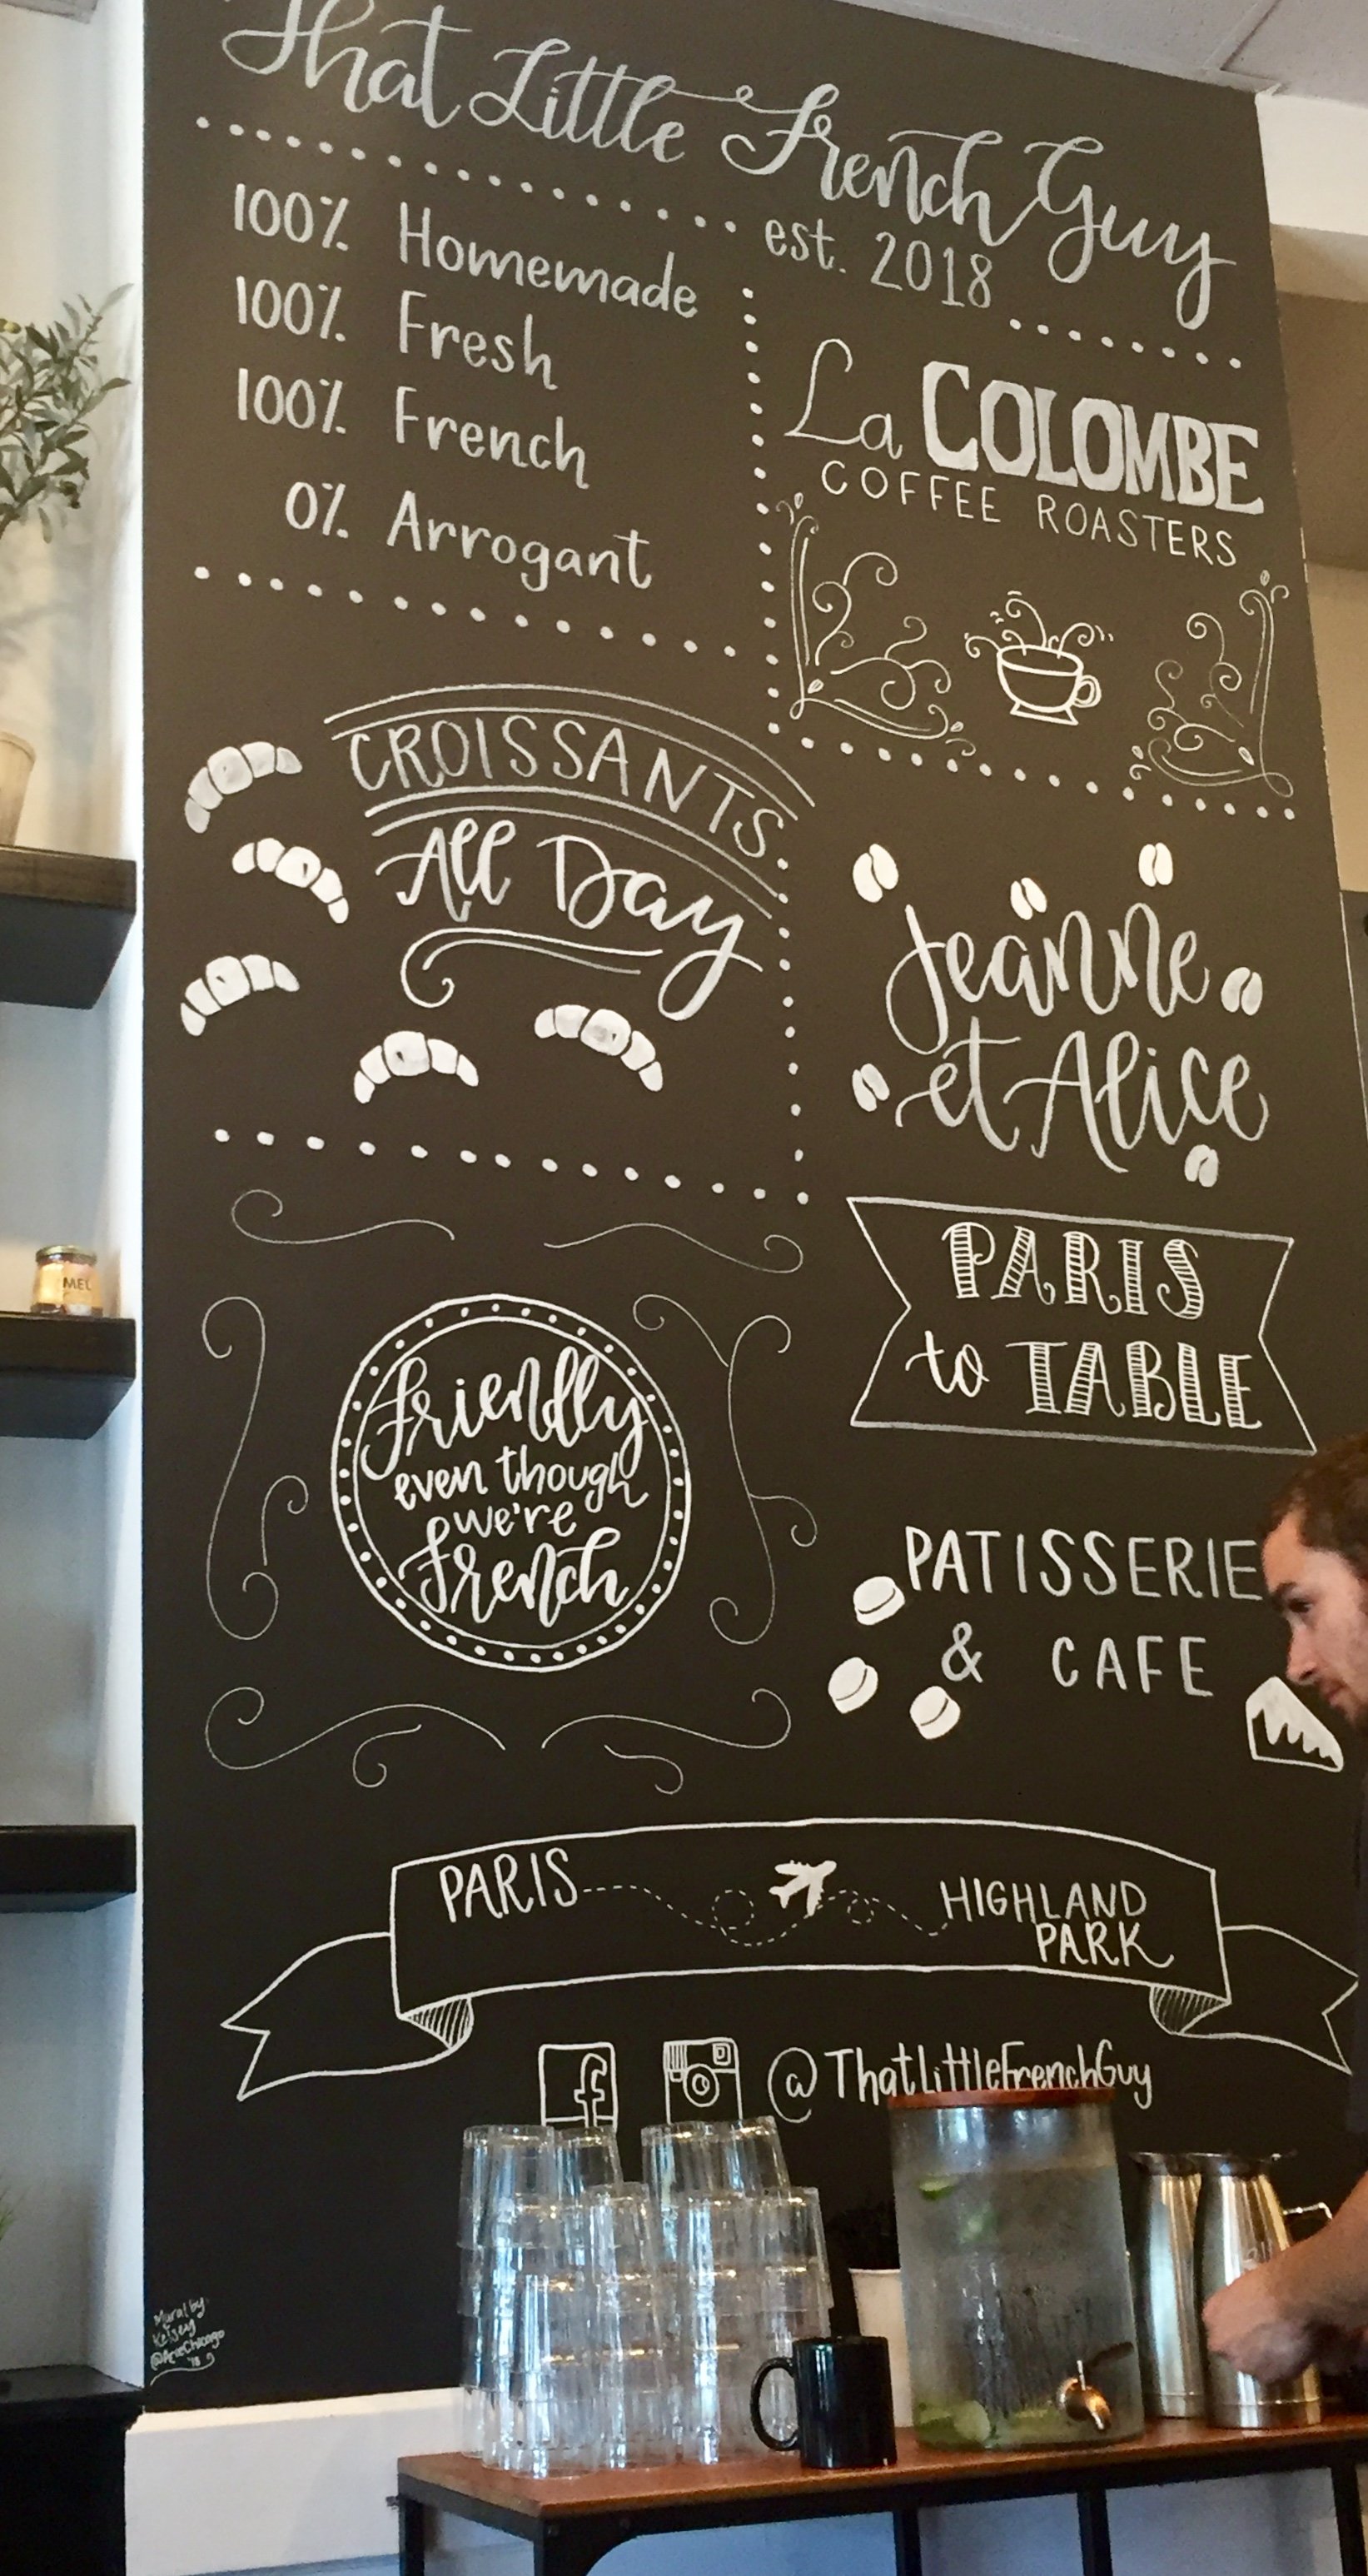 That Little French Guy
est. 2018
100% Homemade
100% Fresh
100% French
0% Arrogant
La COLOMBE
COFFEE ROASTERS
CROISSANTS
All Day
Jeanne
et Alice
PARIS
to TABLE
friendly
even though
we're
French
PATISSERIE
& CAFE
PARIS
HIGHLAND
PARK
f
@ThatLittleFrenchGuy
MEL
Mural by:
Kelsey
'18